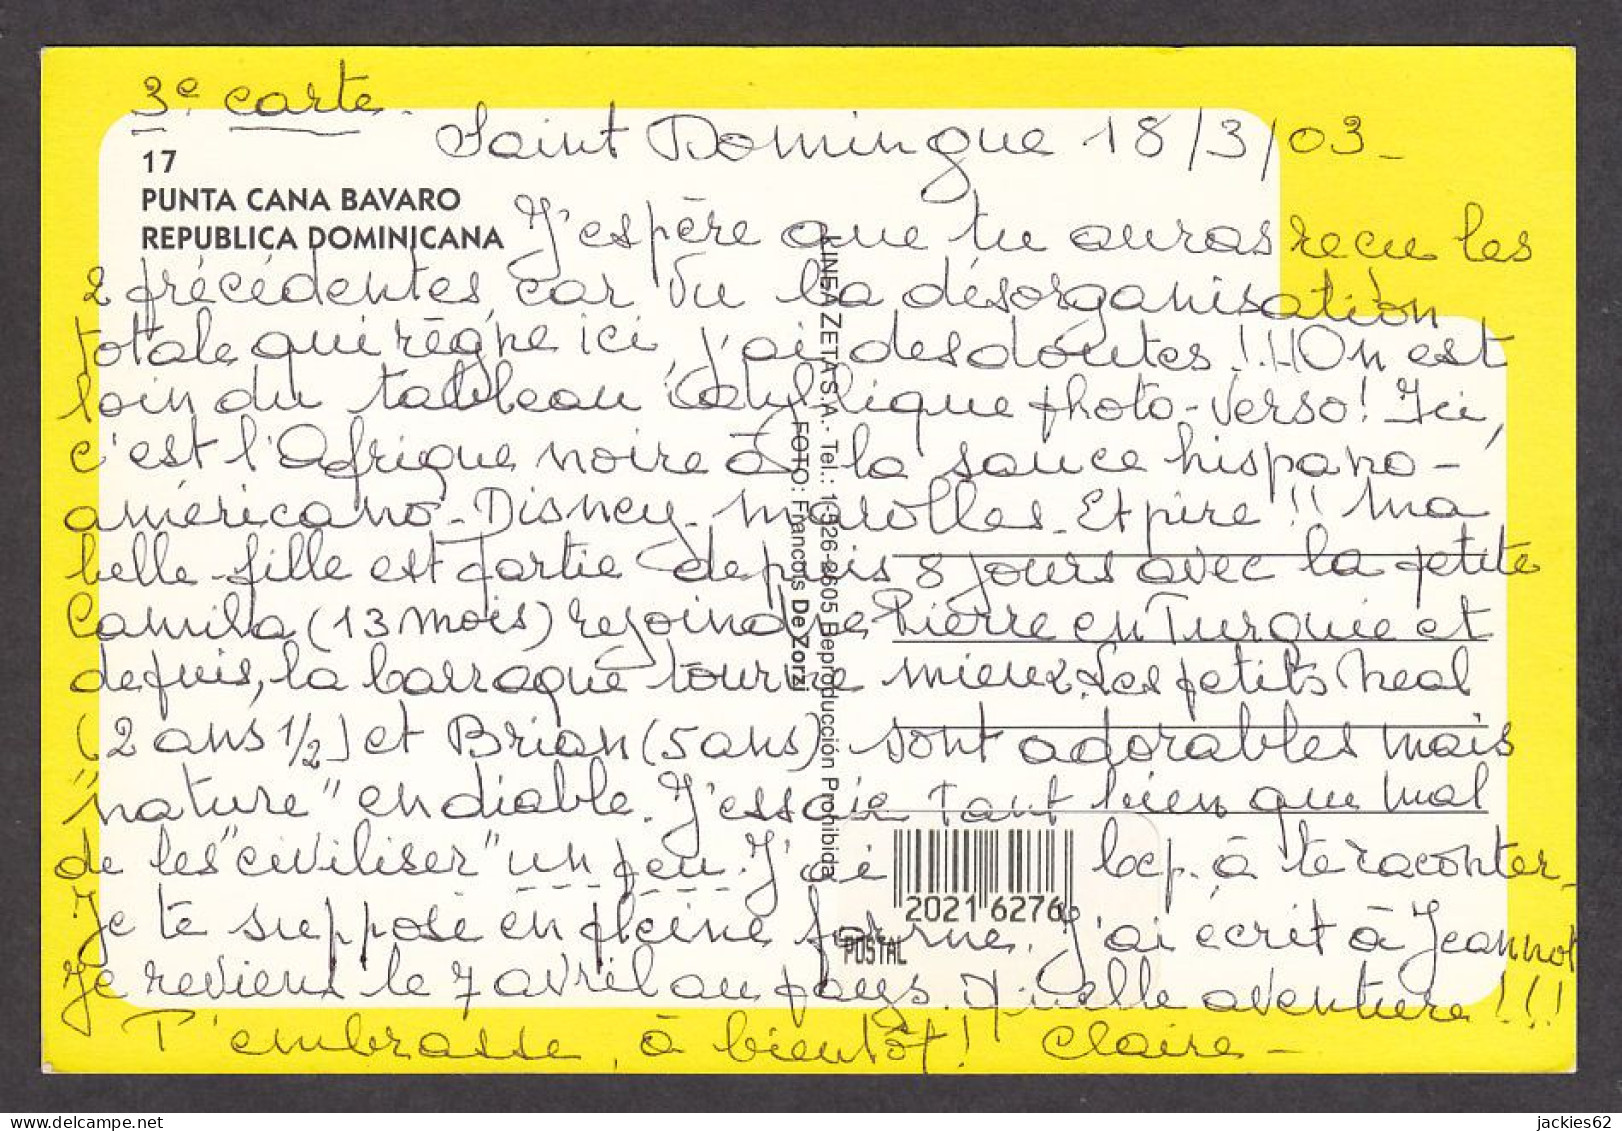 3e carte.
Saint Domingue 18/3/03_
17
PUNTA CANA BAVARO
REPUBLICA DOMINICANA
J'espère que tu auras recu les
2 précédentes, car vu la désorganisation
totale qui règne ici, j'ai des doutes!!! On est
loin du tableau idyllique photo-verso! Ici,
c'est l'Afrique noire à la sauce hispano-
américano-Disney-marolles. Et pire!! Ma
belle-fille est partie depuis 8 jours avec la petite
Camila (13 mois) rejoindre Pierre en Turquie et
depuis, la barraque tourne mieux. Les petits Neal
(2 ans 1/2) et Brian (5 ans) sont adorables mais
"nature" en diable. J'essaie tant bien que mal
de les "civiliser" un peu. J'ai bcp. à te raconter_
Je te suppose en pleine forme. J'ai écrit à Jeannot
Je reviens le 7 avril au pays. Quelle aventure!!!
T'embrasse, à bientôt! Claire_
LINEA ZETA S.A.- Tel.: 1-526-2605 Beproducción Prohibida
FOTO: Francois De Zorzi
2021 6276
POSTAL
jackies62